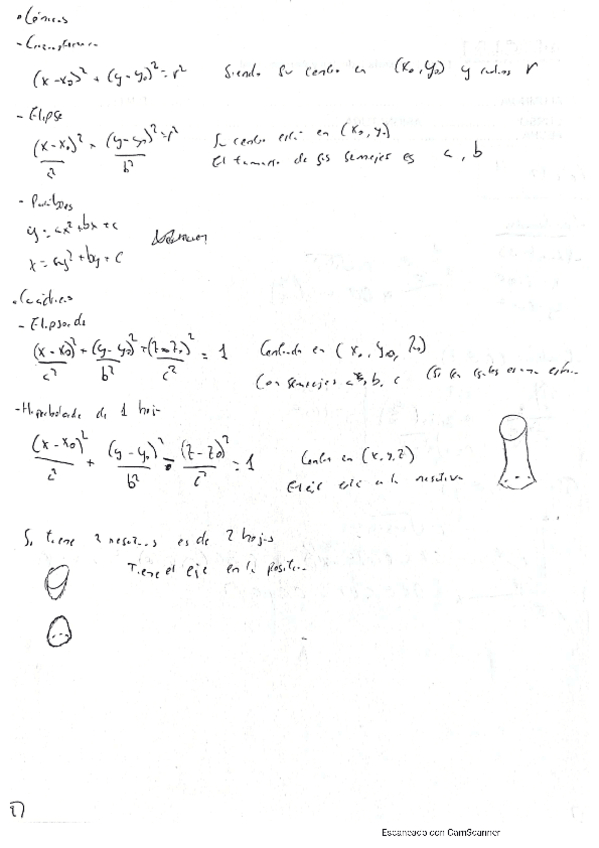 • Cónicas
- Circunferencia
(x - x₀)² + (y - y₀)² = r² Siendo su centro en (x₀, y₀) y radios r
- Elipse
(x - x₀)²/a² + (y - y₀)²/b² = r² Su centro está en (x₀, y₀)
El tamaño de sus semiejes es a, b
- Parábolas
y = ax² + bx + c
x = ay² + by + c
• Cuádricas
- Elipsoide
(x - x₀)²/a² + (y - y₀)²/b² + (z - z₀)²/c² = 1 Centrado en (x₀, y₀, z₀)
Con semiejes a, b, c (Si son iguales es una esfera
- Hiperboloide de 1 hoja
(x - x₀)²/a² + (y - y₀)²/b² - (z - z₀)²/c² = 1 Centro en (x, y, z)
El eje está en la negativa
Si tiene 2 negativos es de 2 hojas
Tiene el eje en la positiva
Escaneado con CamScanner